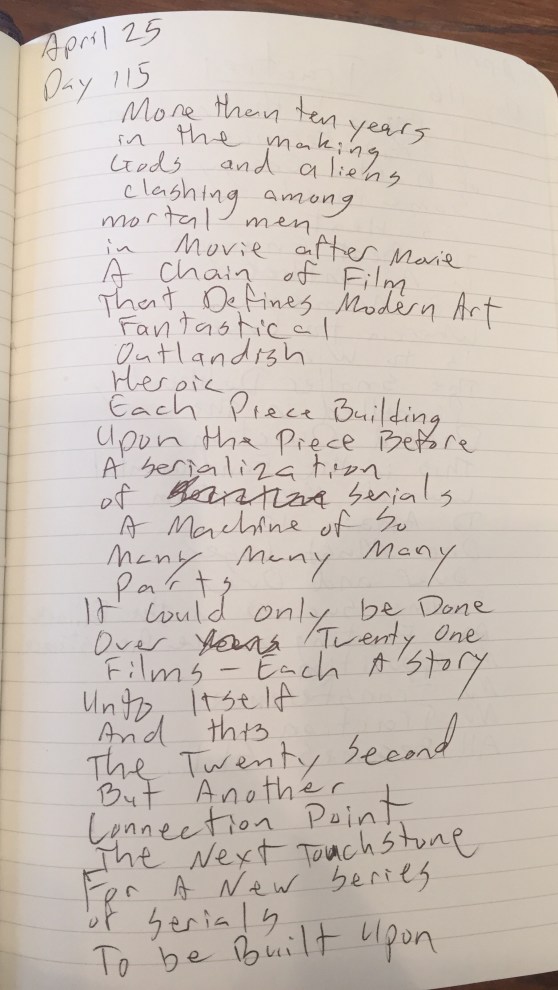 April 25
Day 115
More than ten years
in the making
Gods and aliens
clashing among
mortal men
in Movie after Movie
A Chain of Film
That Defines Modern Art
Fantastical
Outlandish
Heroic
Each Piece Building
Upon the Piece Before
A serialization
of serials
A Machine of So
Many Many Many
Parts
It Could only be Done
Over Twenty One
Films - Each A Story
Unto Itself
And this
The Twenty Second
But Another
Connection Point
The Next Touchstone
For A New Series
of Serials
To be Built Upon